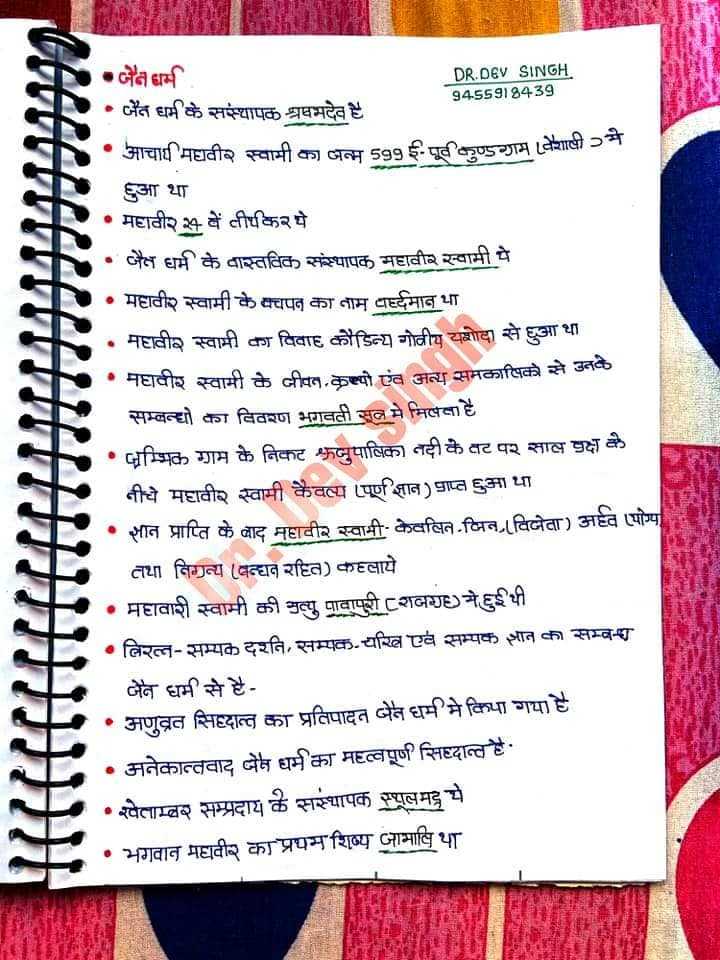 जैन धर्म
DR. DEV SINGH
9455918439
• जैन धर्म के सस्ंथापक श्रषभदेव है
• आचार्य महावीर स्वामी का जन्म 599 ई- पूर्व कुण्डग्राम (वैशाली) मे
हुआ था
• महावीर 24 वें तीर्थकर थे
• जैन धर्म के वास्तविक संस्थापक महावीर स्वामी थे
• महावीर स्वामी के बचपन का नाम वर्ध्दमान था
• महावीर स्वामी का विवाह कौडिन्य गोत्रीय यशोदा से हुआ था
• महावीर स्वामी के जीवन, कृत्यो एंव अन्य समकालिको से उनके
सम्बन्धो का विवरण भगवती सूत्र मे मिलता है
• जृम्भिक ग्राम के निकट ऋजुपालिका नदी के तट पर साल वृक्ष के
नीचे महावीर स्वामी कैवल्य (पूर्ण ज्ञान) प्राप्त हुआ था
• ज्ञान प्राप्ति के बाद महावीर स्वामी- केवलिन, जिन, (विजेता) अर्हत (योग्य)
तथा निग्रन्थ (बन्धन रहित) कहलाये
• महावारी स्वामी की मृत्यु पावापुरी (राजगृह) मे हुई थी
• त्रिरत्न- सम्यक दर्शन, सम्यक-चरित्र एवं सम्यक ज्ञान का सम्बन्ध
जैन धर्म से है-
• अणुव्रत सिध्दान्त का प्रतिपादन जैन धर्म मे किया गया है
• अनेकान्तवाद जैन धर्म का महत्वपूर्ण सिध्दान्त है.
• श्वेताम्बर सम्प्रदाय के सस्ंथापक स्थूलभद्र थे
• भगवान महावीर का प्रथम शिष्य जामालि था
Dr. Dev Singh